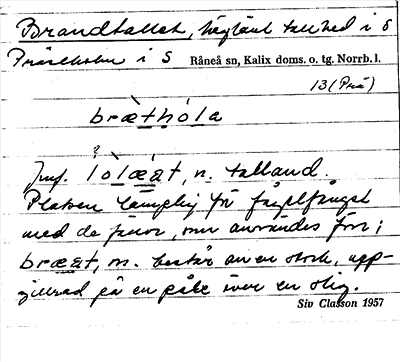 Brandtallet, höglänt tallhed i S
Prästholm i S Råneå sn, Kalix doms. o. tg. Norrb. l.
13 (Prä)
bræthòla
?
Jmf. lòlæat, n. talland.
Platsen lämplig för fågelfångst
med de fällor, som användes förr;
bræat, n. består av en stock, upp-
gillrad på en påle över en stig.
Siv Classon 1957